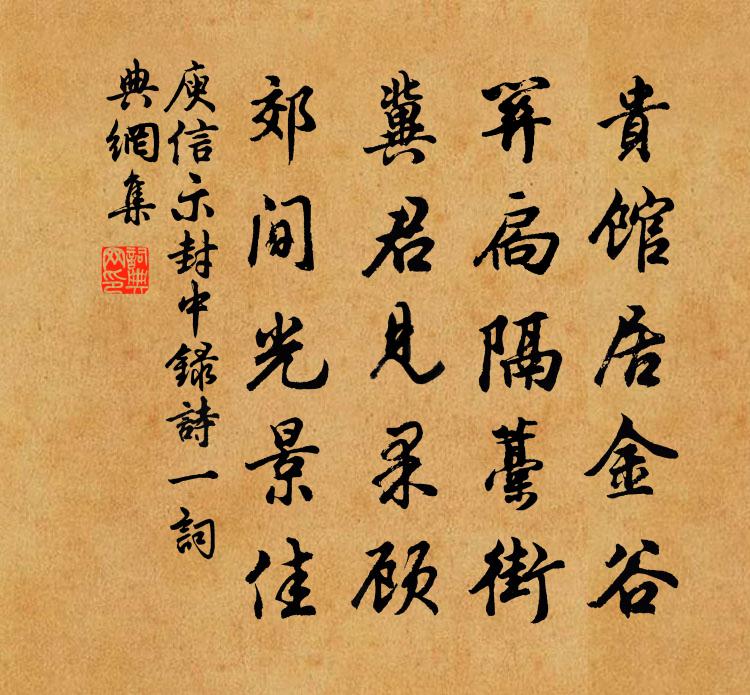 貴館居金谷
關扃隔藁街
冀君見果顧
郊間光景佳
庾信示封中錄詩一詞
典網集
詞典
网印